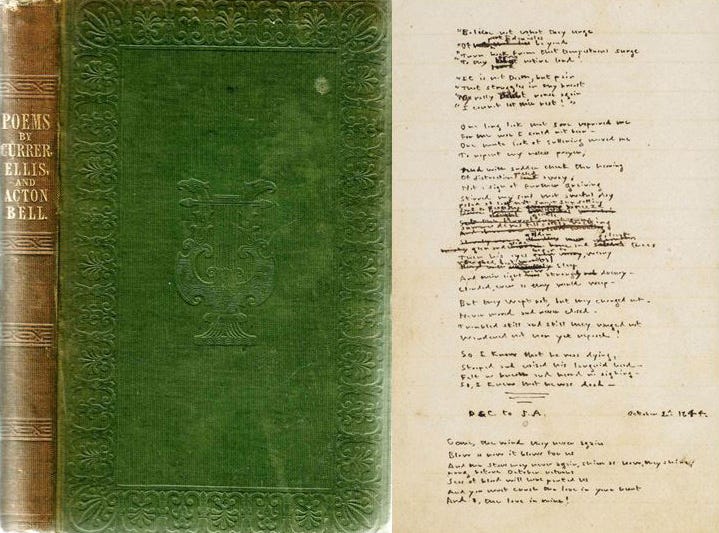 POEMS
BY
CURRER,
ELLIS,
AND
ACTON
BELL.
"Believe not what they urge
"Of Eden isles beyond
"Turn back from that tempestuous surge
"To thy native land!
"It is not Death, but pain
"That struggles in thy breast
"Nay rally rouse again
"I cannot let thee rest!"
One long look that sore reproved me
For the woe I could not bear -
One mute look of suffering moved me
To repent my useless prayer;
And with sudden check the heaving
Of distraction passed away;
Not a sign of further grieving
Stirred my soul that awful day
Clouded, even as they would weep -
But they wept not, but they changed not -
Never moved and never closed -
Troubled still and still they ranged not
Wandered not nor yet reposed!
So I knew that he was dying,
Stooped and raised his languid head -
Felt no breath and heard no sighing -
So, I knew that he was dead -
D.G.C. to J.A. October 2nd 1844.
Come, the wind may never again
Blow as now it blows for us
And the stars may never again, shine as now they shine;
Long before October returns
Seas of blood will have parted us
And you must crush the love in your heart
And I, the love in mine!